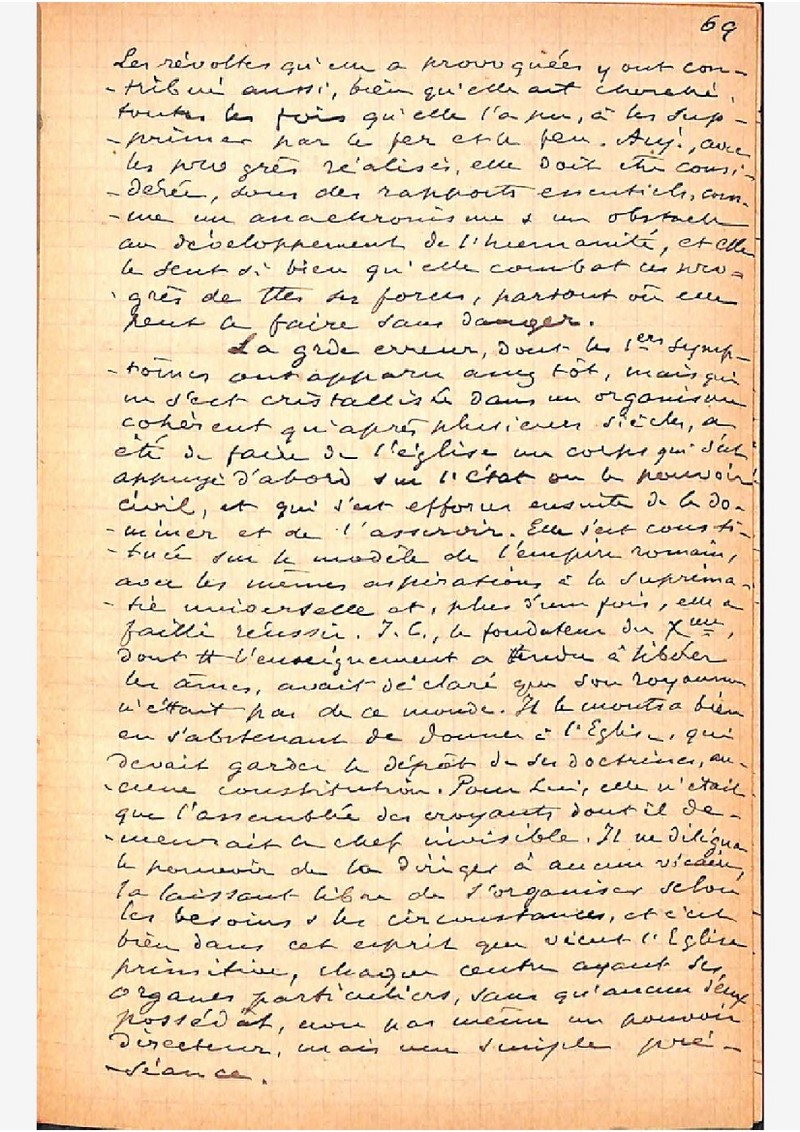 69
Les révoltes qu'elle a provoquées y ont con-
-tribué aussi, bien qu'elle ait cherché,
toutes les fois qu'elle l'a pu, à les sup-
-primer par le fer et le feu. Auj., avec
les progrès réalisés, elle doit être consi-
-dérée, sous des rapports essentiels, com-
-me un anachronisme & un obstacle
au développement de l'humanité, et elle
le sent si bien qu'elle combat ces pro-
-grès de ttes ses forces, partout où elle
peut le faire sans danger.
La grde erreur, dont les 1ers symp-
-tômes ont apparu assez tôt, mais qui
ne s'est cristallisée dans un organisme
cohérent qu'après plusieurs siècles, a
été de faire de l'église un corps qui s'est
appuyé d'abord sur l'état ou le pouvoir
civil, et qui s'est efforcé ensuite de le do-
-miner et de l'asservir. Elle s'est consti-
-tuée sur le modèle de l'empire romain,
avec les mêmes aspirations à la suprêma-
-tie universelle et, plus d'une fois, elle a
failli réussir. J. C., le fondateur du Xme,
dont tt l'enseignement a tendu à libérer
les âmes, avait déclaré que son royaume
n'était pas de ce monde. Il le montra bien
en s'abstenant de donner à l'Eglise, qui
devait garder le dépôt de ses doctrines, au-
-cune constitution. Pour Lui, elle n'était
que l'assemblée des croyants dont il de-
-meurait le chef invisible. Il ne délégua
le pouvoir de la diriger à aucun vicaire,
la laissant libre de s'organiser selon
les besoins & les circonstances, et c'est
bien dans cet esprit que vécut l'Eglise
primitive, chaque centre ayant ses
organes particuliers, sans qu'aucun d'eux
possédât, non pas même un pouvoir
directeur, mais une simple pré-
-séance.